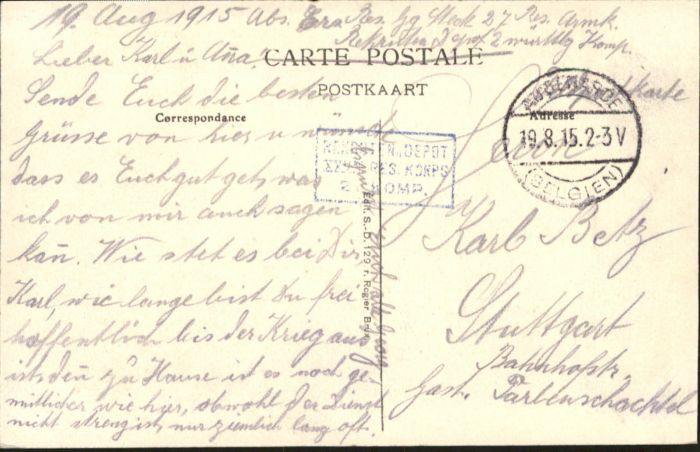 19. Aug 1915 Abs. Ers. Res. Gg Steck 27 Res. Armk.
Rekruten Depot 2 württbg Komp.
CARTE POSTALE
POSTKAART
Correspondance
Adresse
Lieber Karl u Anna!
Sende Euch die besten
Grüsse von hier u wünsche
dass es Euch gut get, was
ich von mir auch sagen
kan̄. Wie stet es bei Dir
Karl, wie lange bist Du frei
hoffentlich bis der Krieg aus
ist den̄ zu Hause ist es noch ge-
mütlicher wie hier, obwohl der Dienst
nicht streng ist, nur ziemlich lang oft.
REKRUTEN-DEPOT
RES. KORPS
2. KOMP.
19.8.15.2-3V
(BELGIEN)
Feldpostkarte
Herrn
Karl Betz
Stuttgart
Bahnhofstr.
Gast.